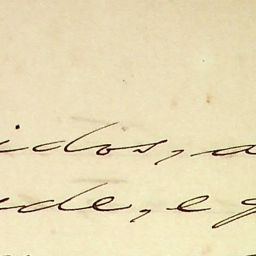 idos, a
de, e g